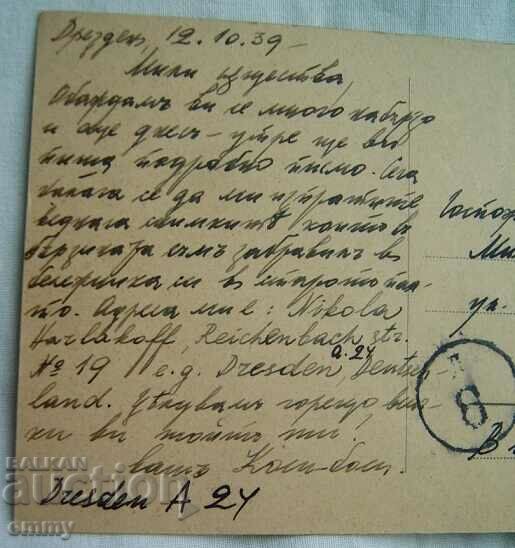 Дрезден, 12.10.39
Мили
Обаждамъ ви се много набързо
и още днесъ – утре ще ви
пиша подробно писмо. Сега
се да ми изпратите
веднага снимкитѣ които въ
бързината съмъ забравилъ въ
си въ старото пал-
то. Адреса ми е: Nikola
Harlakoff, Reichenbach str.
№ 19 e.g. Dresden A. 24, Deutsch-
land. Цѣлувамъ горещо всич-
ки ви
вашъ
Dresden A 24
Господ
Ми
ул.
8
В
BALKAN
auction
emmy